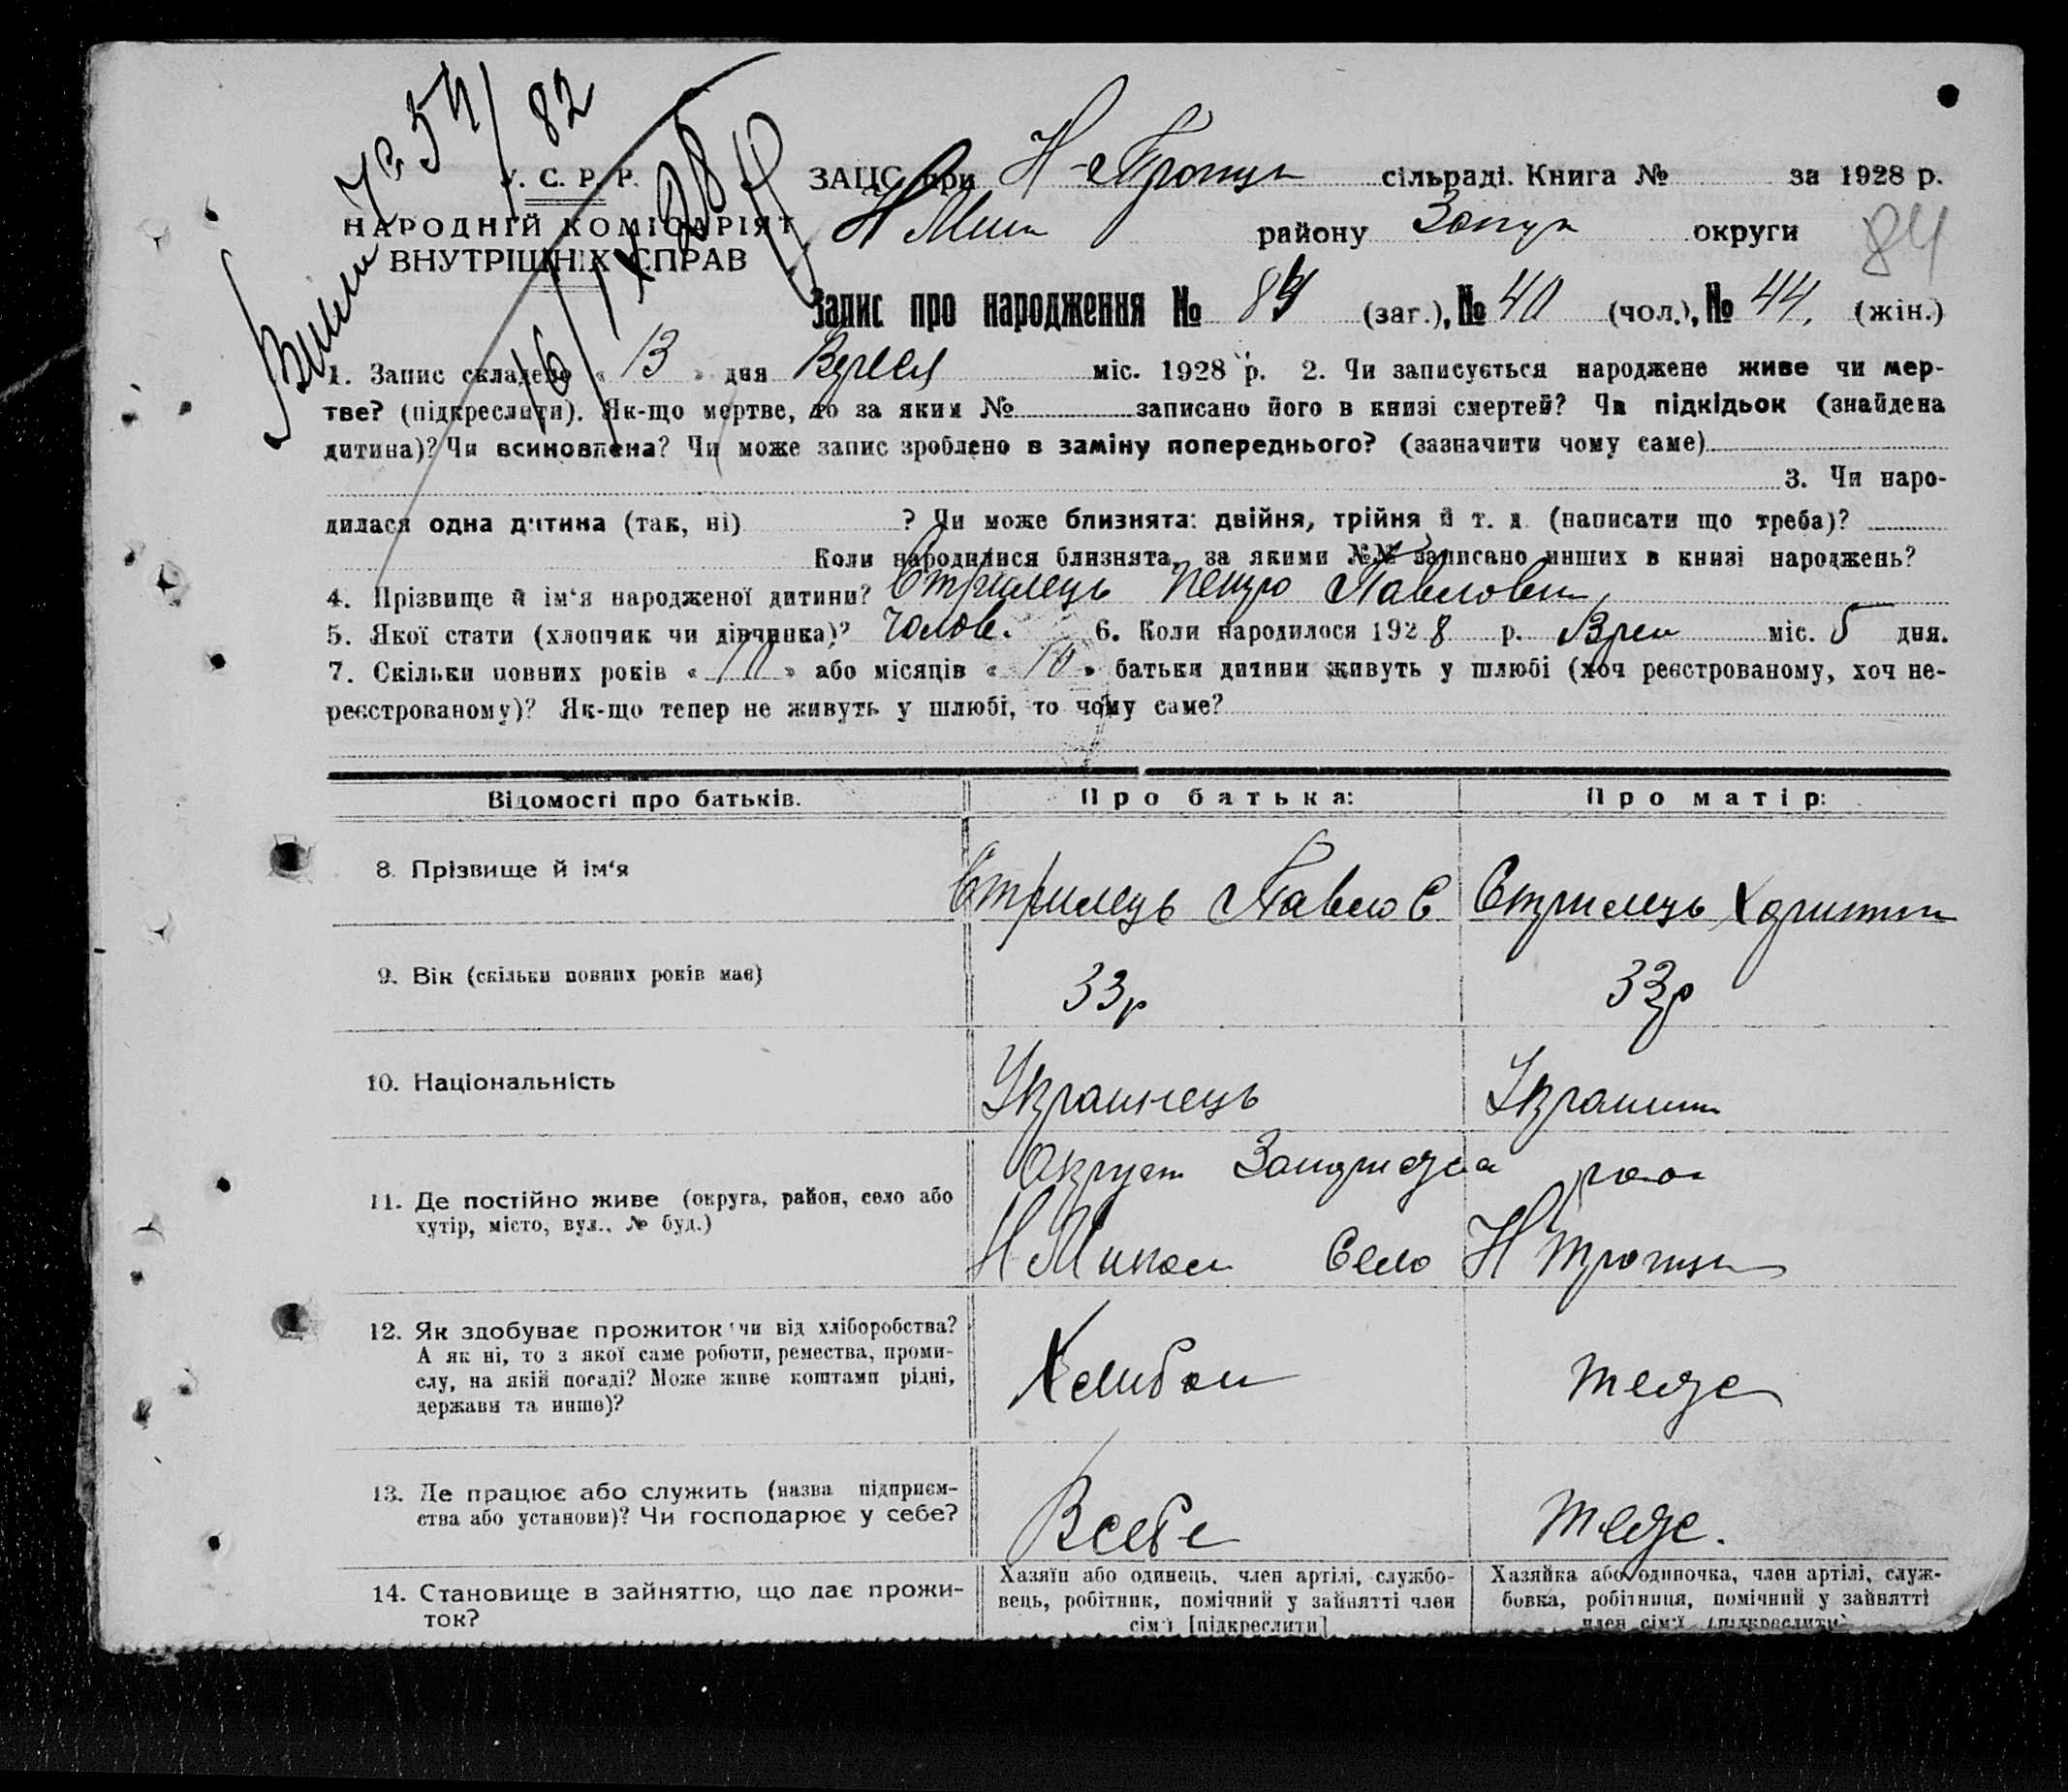 № 54/82
У. С. Р. Р.
НАРОДНІЙ КОМІСАРІЯТ
ВНУТРІШНІХ СПРАВ
ЗАЦС при Н-Троицьк сільраді. Книга № за 1928 р.
Н Мик району Запор округи
84
Запис про народження № 84 (заг.), № 40 (чол.), № 44. (жін.)
1. Запис складено « 13 » дня Вересня міс. 1928 р. 2. Чи записується народжене живе чи мер-
тве? (підкреслити). Як-що мертве, то за яким № записано його в книзі смертей? Чи підкідьок (знайдена
дитина)? Чи всиновлена? Чи може запис зроблено в заміну попереднього? (зазначити чому саме)
3. Чи наро-
дилася одна дитина (так, ні) ? Чи може близнята: двійня, трійня й т. д. (написати що треба)?
Коли народилися близнята, за якими №№ записано инших в книзі народжень?
4. Прізвище й ім‘я народженої дитини? Стрилець Петро Павлович
5. Якої стати (хлопчик чи дівчинка)? Чолов. 6. Коли народилося 1928 р. Верес міс. 5 дня.
7. Скільки повних років « 10 » або місяців « 10 » батьки дитини живуть у шлюбі (хоч реєстрованому, хоч не-
реєстрованому)? Як-що тепер не живуть у шлюбі, то чому саме?
Відомості про батьків. Про батька: Про матір:
8. Прізвище й ім‘я Стрилець Павло С Стрилець Хористин
9. Вік (скільки повних років має) 33р 33р
10. Національність Украинець Украин
11. Де постійно живе (округа, район, село або
хутір, місто, вул., № буд.)
Округи Запоризька рай
Н Микол Село Н Троицьк
12. Як здобуває прожиток чи від хліборобства?
А як ні, то з якої саме роботи, ремества, проми-
слу, на якій посаді? Може живе коштами рідні,
держави та инше)?
Хлибом теже
13. Де працює або служить (назва підприєм-
ства або установи)? Чи господарює у себе?
Всебе теже.
14. Становище в зайняттю, що дає прожи-
ток?
Хазяїн або одинець, член артілі, службо-
вець, робітник, помічний у зайнятті член
сім‘ї [підкреслити]
Хазяйка або одиночка, член артілі, служ-
бовка, робітниця, помічний у зайнятті
член сім‘ї (підкреслити)